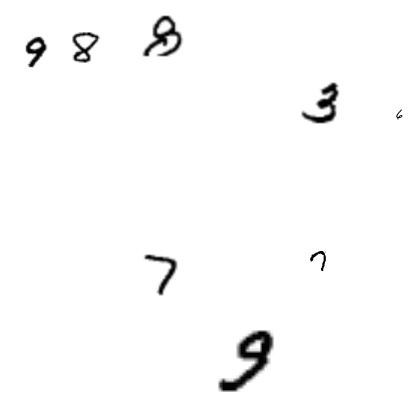 9 8 8
3 6
7 7
9